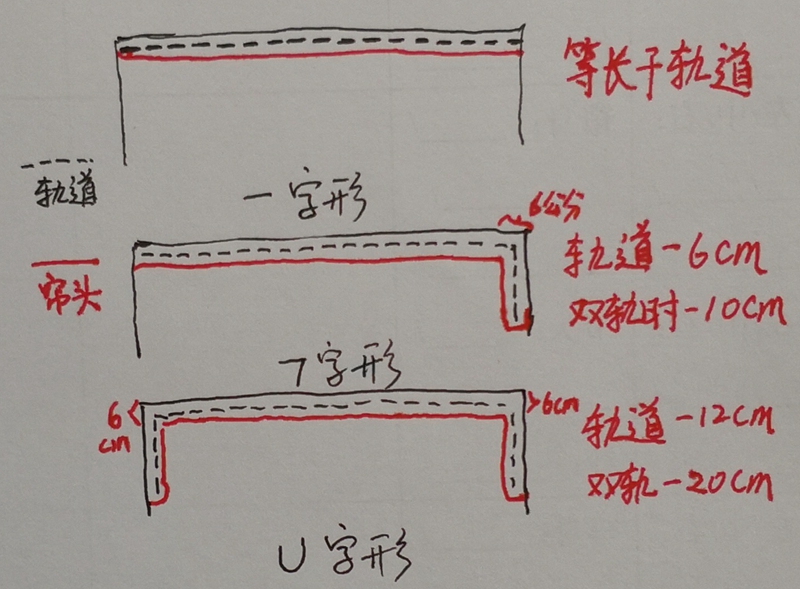 等长于轨道
轨道
一字形
6公分
轨道-6cm
帘头
双轨时-10cm
7字形
6
cm
6cm
轨道-12cm
双轨-20cm
U字形